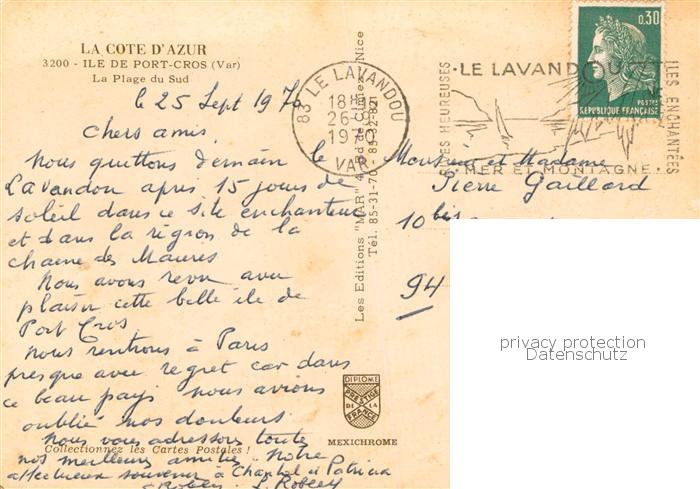 LA COTE D'AZUR
3200 - ILE DE PORT-CROS (Var)
La Plage du Sud
le 25 Sept 1970
Chers amis.
Nous quittons demain le
Lavandou après 15 jours de
soleil dans ce site enchanteur
et dans la région de la
chaine des Maures
Nous avons revu avec
plaisir cette belle ile de
Port Cros
Nous rentrons à Paris
presque avec regret car dans
ce beau pays nous avions
oublié nos douleurs.
Nous vous adressons toute
nos meilleurs amitiés. Notre
affectueux souvenir à Chantal et Patricia
Collectionnez les Cartes Postales !
Les Editions "MAR" Nice
Tél. 85-31-70 - 85-32-82
DIPLOME
PRESTIGE
DE LA
FRANCE
MEXICHROME
83 LE LAVANDOU
18H
26-9
1970
VAR
LE LAVANDOU
ILES ENCHANTÉES
HEUREUSES
MER ET MONTAGNE
0,30
POSTES
REPUBLIQUE FRANÇAISE
Monsieur et Madame
Pierre Gaillard
10 bis
94
privacy protection
Datenschutz